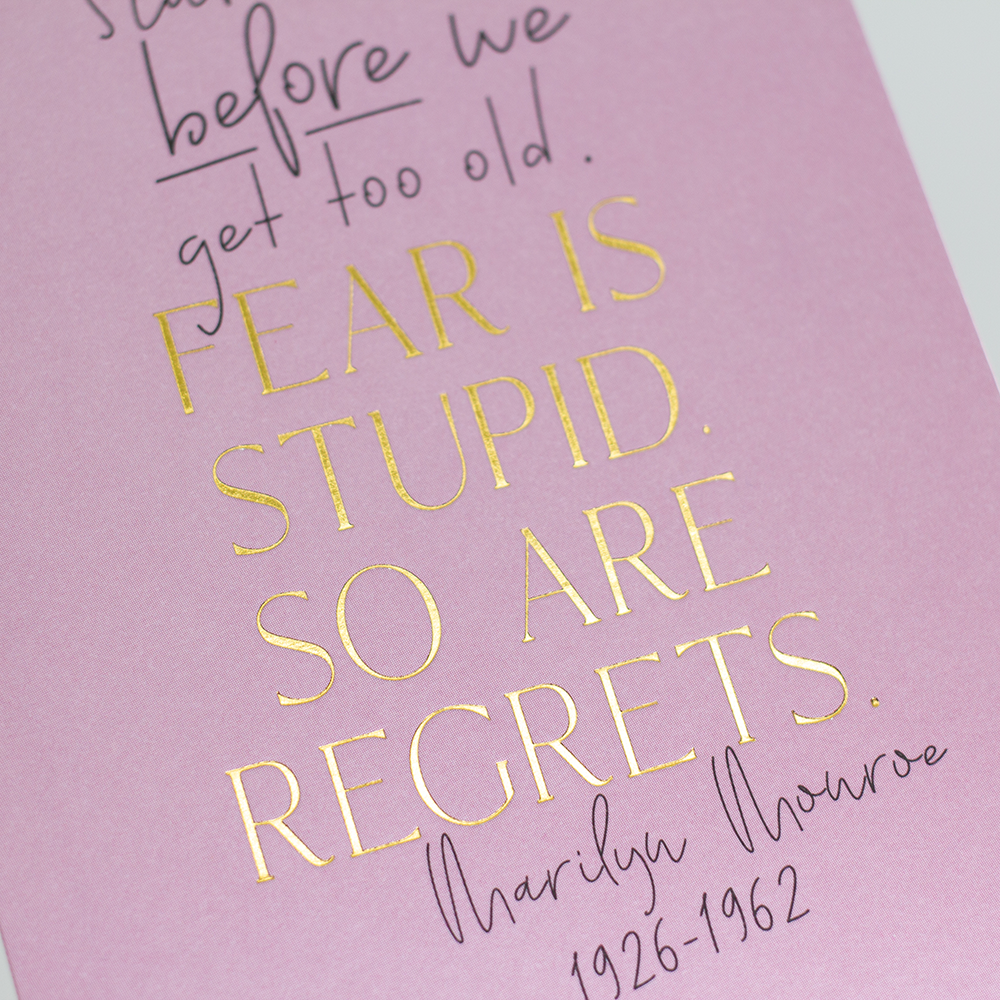 before we
get too old.
FEAR IS
STUPID.
SO ARE
REGRETS.
Marilyn Monroe
1926-1962